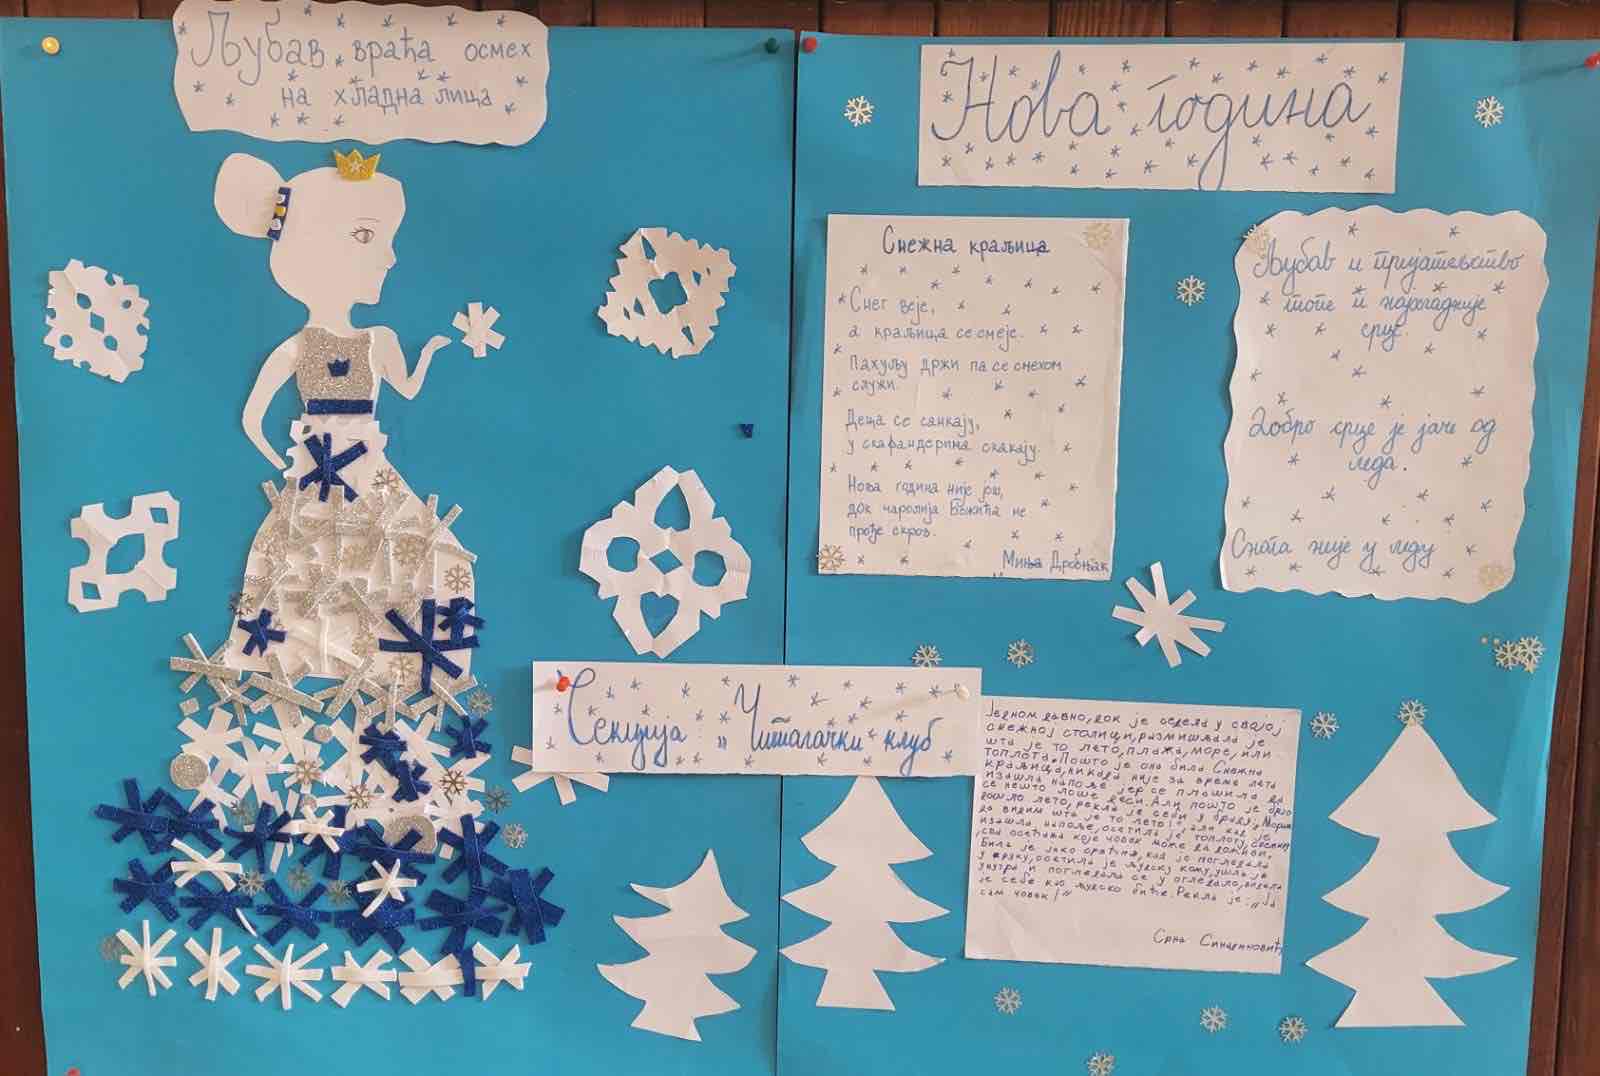 Љубав враћа осмех
на хладна лица
Нова година
Снежна краљица
Снег веје,
а краљица се смеје.
Пахуљу држи па се смехом
служи.
Деца се санкају,
у скафандерима скакају.
Нова година није још,
док чаролија Божића не
прође скроз.
Миња Дробњак
Љубав и пријатељство
топе и најхладније
срце.
Добро срце је јаче од
леда.
Снага није у леду
Секција „Читалачки клуб
Једном давно, док је седела у својој
снежној столици, размишљала је
шта је то лето, плажа, море, или
топлота. Пошто је она била Снежна
краљица, никада није за време лета
изашла напоље јер се плашила да
се нешто лоше деси. Али пошто је брзо
дошло лето, рекла је себи у браду „Морам
да видим шта је то лето!" али кад је
изашла напоље, осетила је топлоту,
сва осећања које човек може да доживи.
Била је јако срећна, кад је погледала
у руку, осетила је људску кожу, ушла је
унутра и погледала се у огледало, видела
је себе као људско биће. Рекла је: „Ја
сам човек!"
Срна